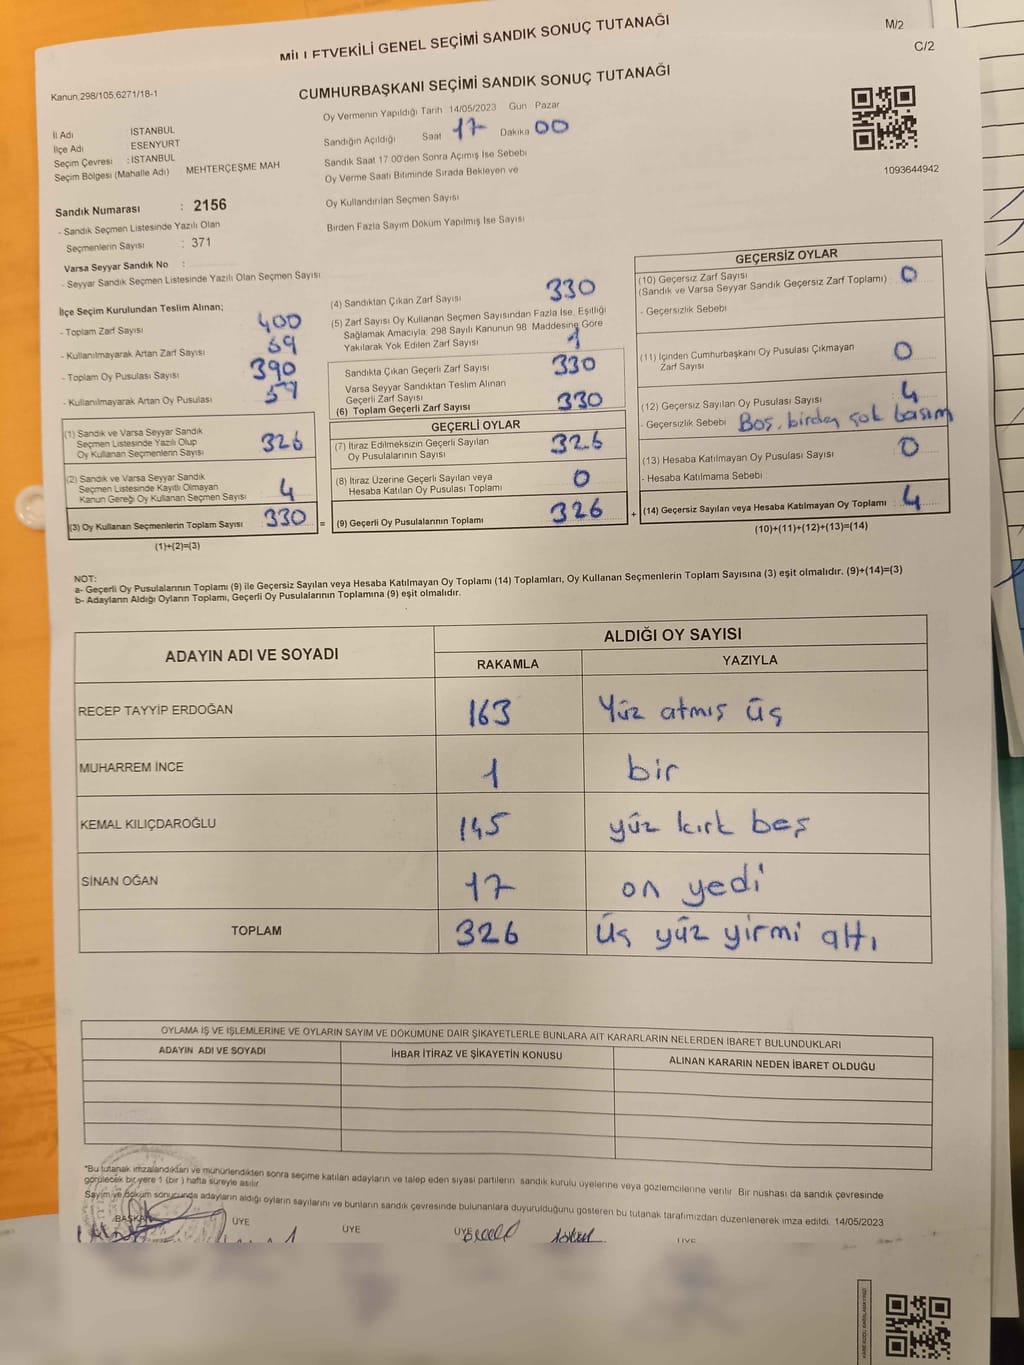 MİLLETVEKİLİ GENEL SEÇİMİ SANDIK SONUÇ TUTANAĞI
M/2
C/2
CUMHURBAŞKANI SEÇİMİ SANDIK SONUÇ TUTANAĞI
Kanun 298/105,6271/18-1
Oy Vermenin Yapıldığı Tarih 14/05/2023 Gün Pazar
Sandığın Açıldığı Saat 17 Dakika 00
Sandık Saat 17 00'den Sonra Açımış İse Sebebi
Oy Verme Saati Bitiminde Sırada Bekleyen ve
Oy Kullandırılan Seçmen Sayısı
Birden Fazla Sayım Döküm Yapılmış İse Sayısı
İl Adı İSTANBUL
İlçe Adı ESENYURT
Seçim Çevresi : İSTANBUL
Seçim Bölgesi (Mahalle Adı) MEHTERÇEŞME MAH
1093644942
Sandık Numarası : 2156
- Sandık Seçmen Listesinde Yazılı Olan
Seçmenlerin Sayısı : 371
Varsa Seyyar Sandık No :
- Seyyar Sandık Seçmen Listesinde Yazılı Olan Seçmen Sayısı
İlçe Seçim Kurulundan Teslim Alınan;
- Toplam Zarf Sayısı 400
- Kullanılmayarak Artan Zarf Sayısı 69
- Toplam Oy Pusulası Sayısı 390
- Kullanılmayarak Artan Oy Pusulası 59
(1) Sandık ve Varsa Seyyar Sandık
Seçmen Listesinde Yazılı Olup
Oy Kullanan Seçmenlerin Sayısı 326
(2) Sandık ve Varsa Seyyar Sandık
Seçmen Listesinde Kayıtlı Olmayan
Kanun Gereği Oy Kullanan Seçmen Sayısı 4
(3) Oy Kullanan Seçmenlerin Toplam Sayısı 330 =
(1)+(2)=(3)
(4) Sandıktan Çıkan Zarf Sayısı 330
(5) Zarf Sayısı Oy Kullanan Seçmen Sayısından Fazla İse, Eşitliği
Sağlamak Amacıyla; 298 Sayılı Kanunun 98 Maddesine Göre
Yakılarak Yok Edilen Zarf Sayısı 1
Sandıkta Çıkan Geçerli Zarf Sayısı 330
Varsa Seyyar Sandıktan Teslim Alınan
Geçerli Zarf Sayısı
(6) Toplam Geçerli Zarf Sayısı 330
GEÇERLİ OYLAR
(7) İtiraz Edilmeksizin Geçerli Sayılan
Oy Pusulalarının Sayısı 326
(8) İtiraz Üzerine Geçerli Sayılan veya
Hesaba Katılan Oy Pusulası Toplamı 0
(9) Geçerli Oy Pusulalarının Toplamı 326 +
GEÇERSİZ OYLAR
(10) Geçersiz Zarf Sayısı
(Sandık ve Varsa Seyyar Sandık Geçersiz Zarf Toplamı) 0
- Geçersizlik Sebebi
(11) İçinden Cumhurbaşkanı Oy Pusulası Çıkmayan
Zarf Sayısı 0
(12) Geçersiz Sayılan Oy Pusulası Sayısı 4
- Geçersizlik Sebebi Boş, birden çok basım
(13) Hesaba Katılmayan Oy Pusulası Sayısı 0
- Hesaba Katılmama Sebebi
(14) Geçersiz Sayılan veya Hesaba Katılmayan Oy Toplamı 4
(10)+(11)+(12)+(13)=(14)
NOT:
a- Geçerli Oy Pusulalarının Toplamı (9) ile Geçersiz Sayılan veya Hesaba Katılmayan Oy Toplamı (14) Toplamları, Oy Kullanan Seçmenlerin Toplam Sayısına (3) eşit olmalıdır. (9)+(14)=(3)
b- Adayların Aldığı Oyların Toplamı, Geçerli Oy Pusulalarının Toplamına (9) eşit olmalıdır.
ADAYIN ADI VE SOYADI ALDIĞI OY SAYISI
RAKAMLA YAZIYLA
RECEP TAYYİP ERDOĞAN 163 Yüz atmış üç
MUHARREM İNCE 1 bir
KEMAL KILIÇDAROĞLU 145 yüz kırk beş
SİNAN OĞAN 17 on yedi
TOPLAM 326 üç yüz yirmi altı
OYLAMA İŞ VE İŞLEMLERİNE VE OYLARIN SAYIM VE DÖKÜMÜNE DAİR ŞİKAYETLERLE BUNLARA AİT KARARLARIN NELERDEN İBARET BULUNDUKLARI
ADAYIN ADI VE SOYADI İHBAR İTİRAZ VE ŞİKAYETİN KONUSU ALINAN KARARIN NEDEN İBARET OLDUĞU
*Bu tutanak imzalandıktan ve mühürlendikten sonra seçime katılan adayların ve talep eden siyasi partilerin sandık kurulu üyelerine veya gözlemcilerine verilir Bir nüshası da sandık çevresinde
görülecek bir yere 1 (bir) hafta süreyle asılır.
Sayım ve döküm sonucunda adayların aldığı oyların sayılarını ve bunların sandık çevresinde bulunanlara duyurulduğunu gösteren bu tutanak tarafımızdan düzenlenerek imza edildi. 14/05/2023
BAŞKAN ÜYE ÜYE ÜYE ÜYE